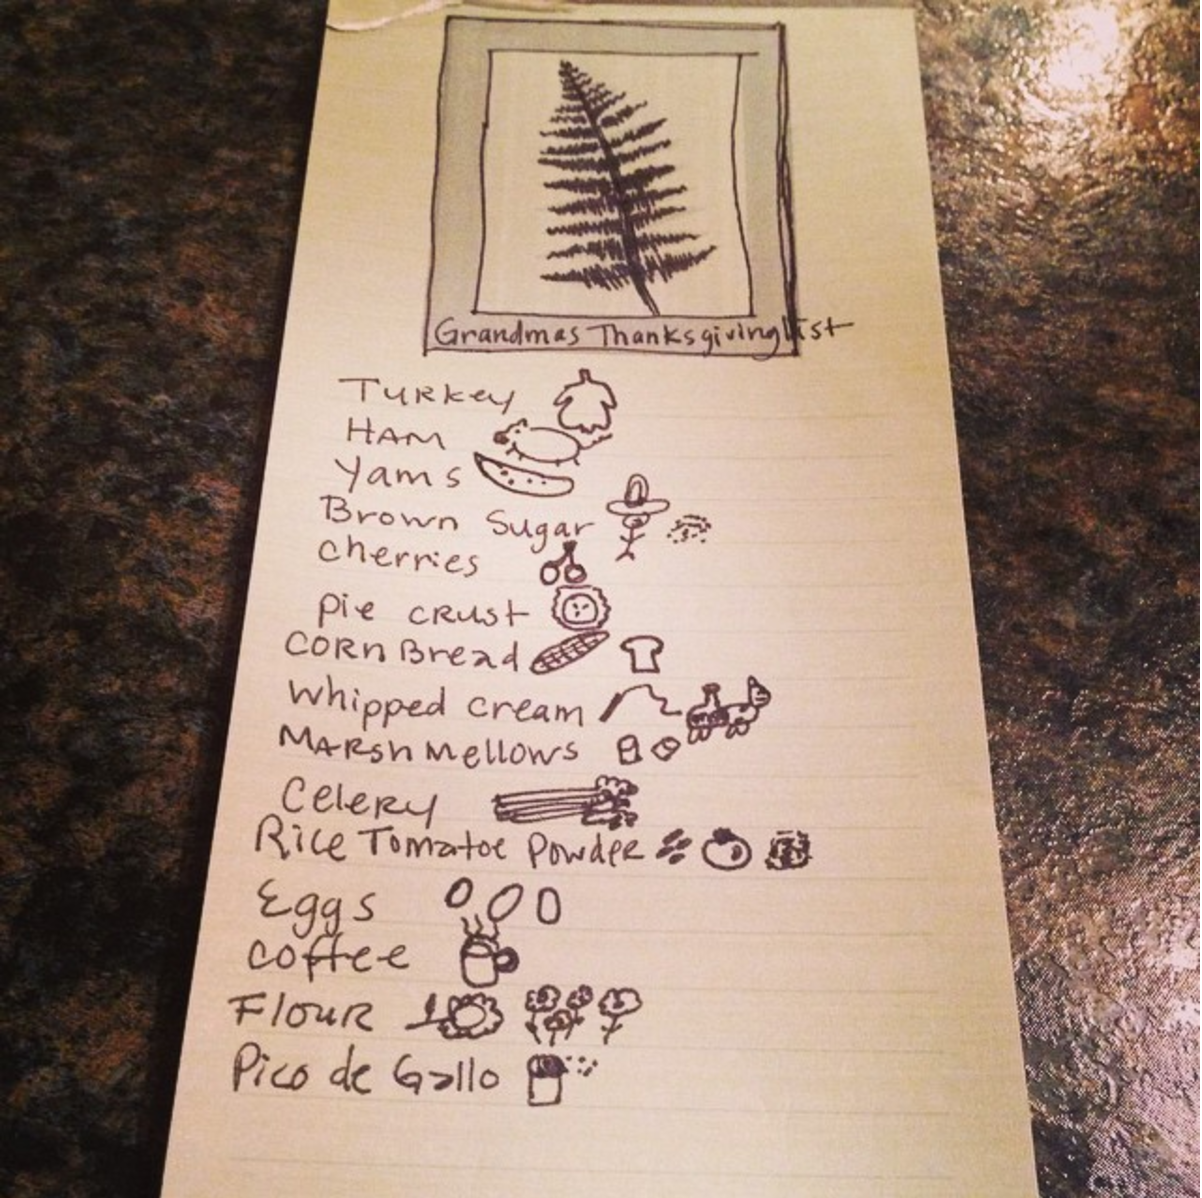 Grandmas Thanksgiving list
Turkey
HAM
Yams
Brown Sugar
cherries
pie crust
CORN Bread
whipped cream
MARSh Mellows
Celery
Rice Tomatoe Powder
Eggs
coffee
Flour
Pico de Gallo